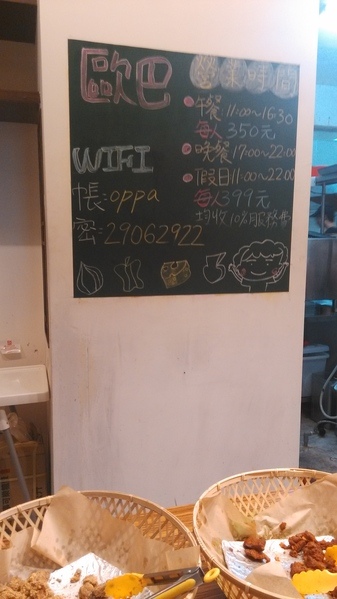 歐巴
營業時間
午餐 11:00~16:30
每人 350元
晚餐 17:00~22:00
假日 11:00~22:00
每人 399元
均收10%服務費
WIFI
帳:oppa
密:29062922